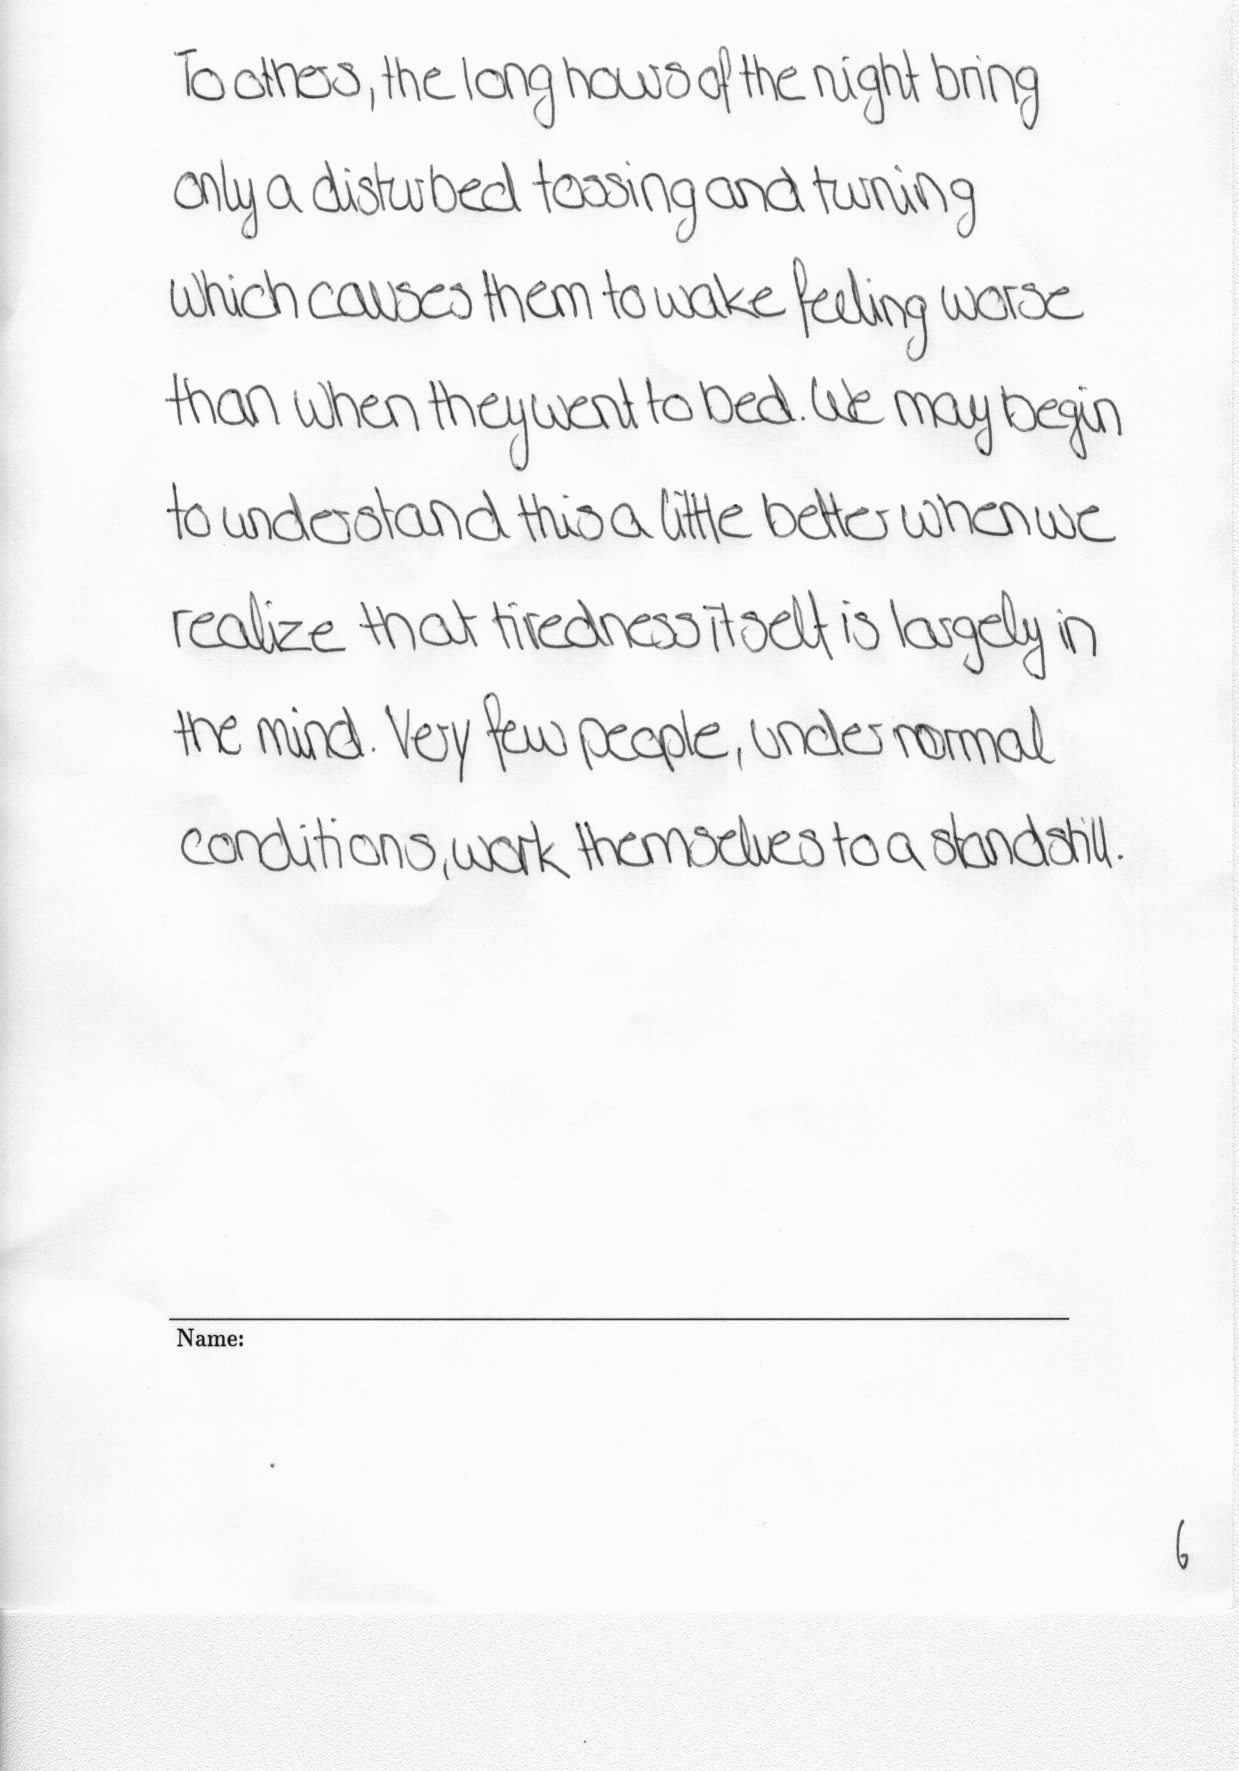 To others, the long hours of the night bring
only a disturbed tossing and turning
which causes them to wake feeling worse
than when they went to bed. We may begin
to understand this a little better when we
realize that tiredness itself is largely in
the mind. Very few people, under normal
conditions, work themselves to a standstill.
Name:
6